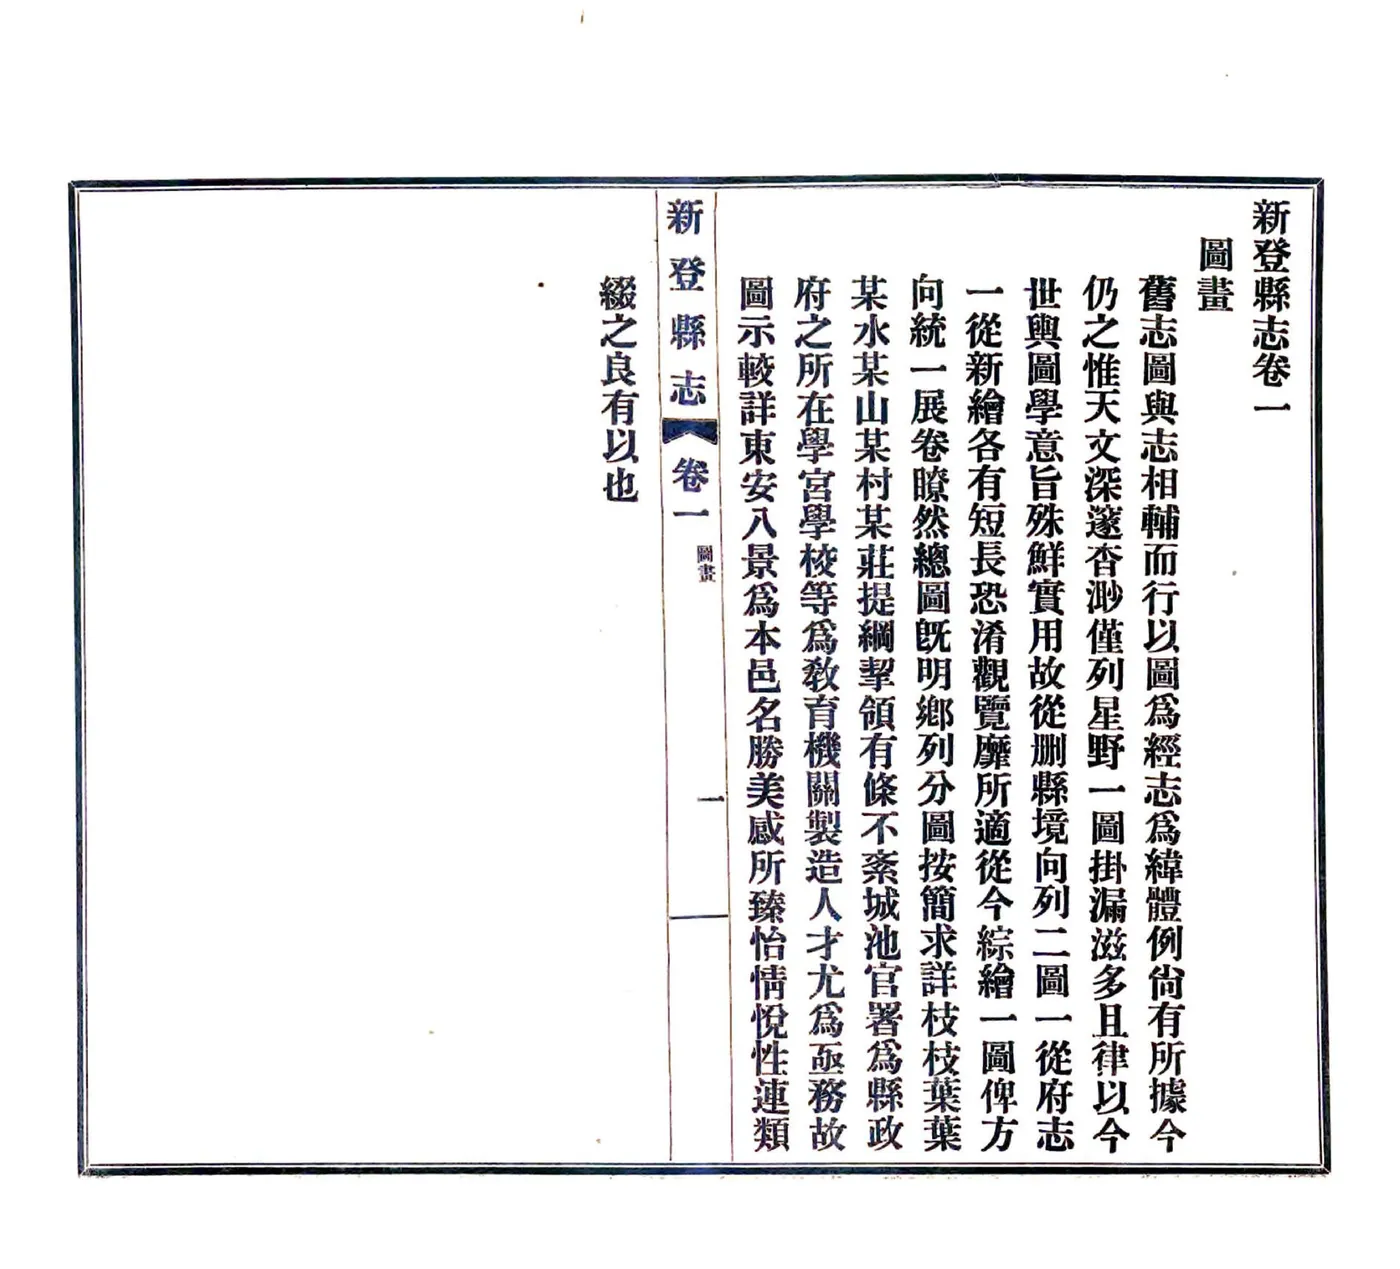 新登縣志卷一
圖畫
舊志圖與志相輔而行以圖爲經志爲緯體例尙有所據今
仍之惟天文深邃杳渺僅列星野一圖掛漏滋多且律以今
世輿圖學意旨殊鮮實用故從删縣境向列二圖一從府志
一從新繪各有短長恐淆觀覽靡所適從今綜繪一圖俾方
向統一展卷瞭然總圖旣明鄉列分圖按簡求詳枝枝葉葉
某水某山某村某莊提綱挈領有條不紊城池官署爲縣政
府之所在學宮學校等爲敎育機關製造人才尤爲亟務故
圖示較詳東安八景爲本邑名勝美感所臻怡情悅性連類
新登縣志
卷一
圖畫
一
綴之良有以也